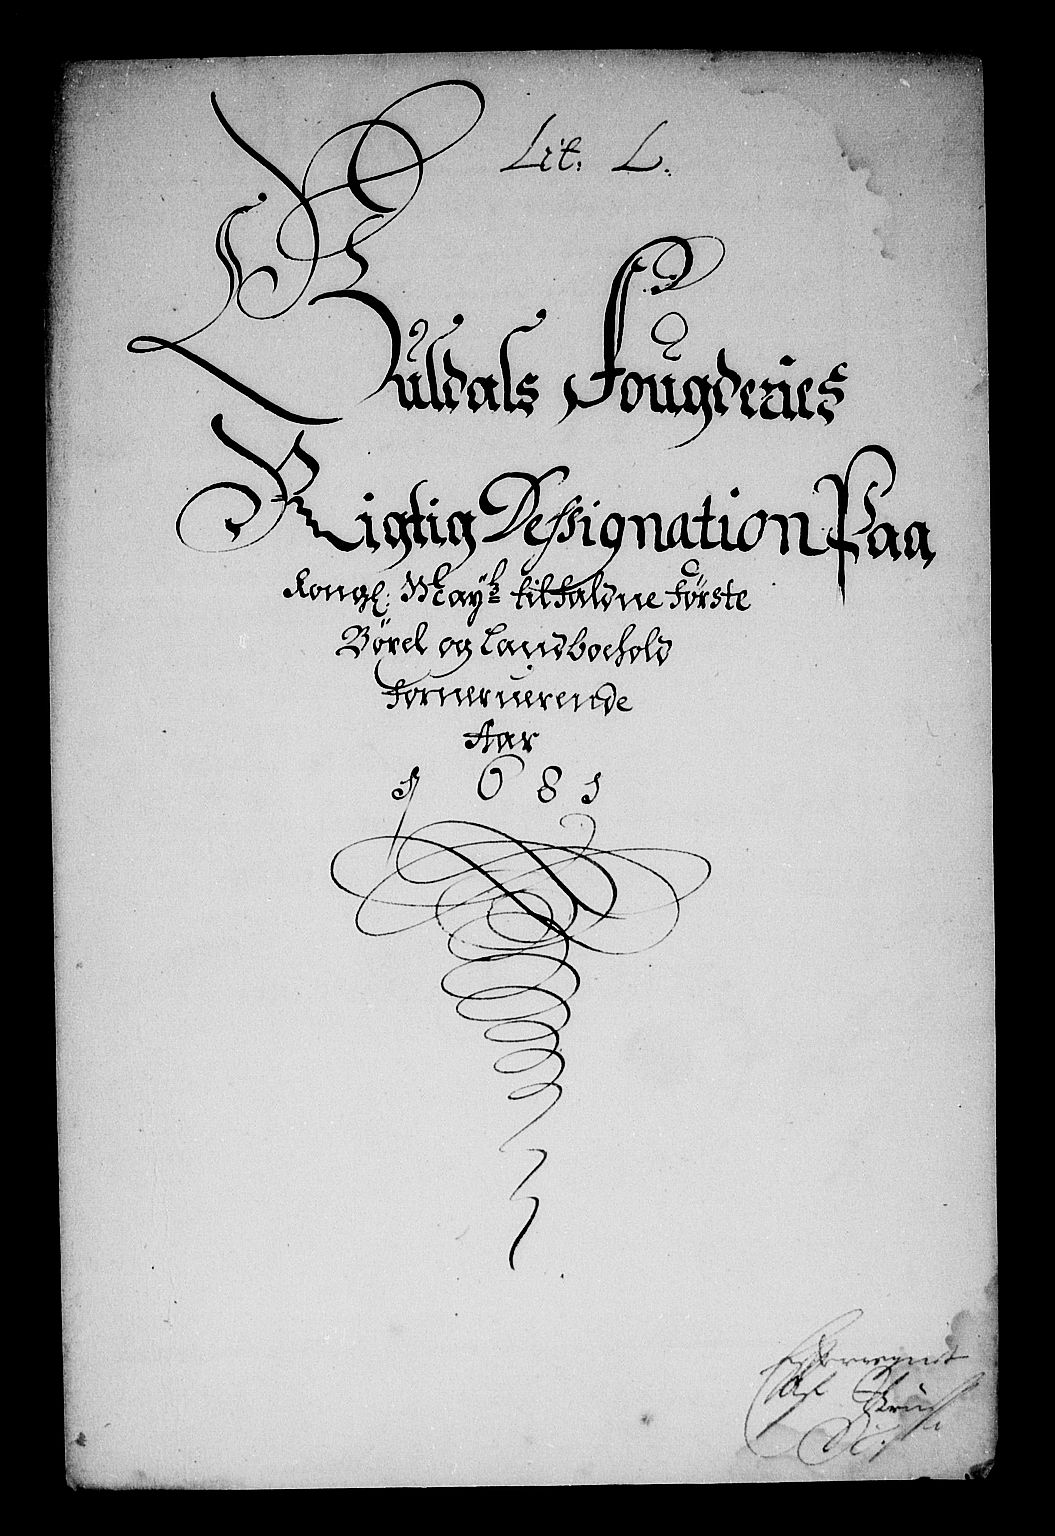 Lit: L.
Guldals Fougderies
Rigtig Dessignation Paa
Kongl: Mayᵗˢ tilfaldne Første
Börel og Landboehold
forneruerende
Aar
1681
Efterregnet